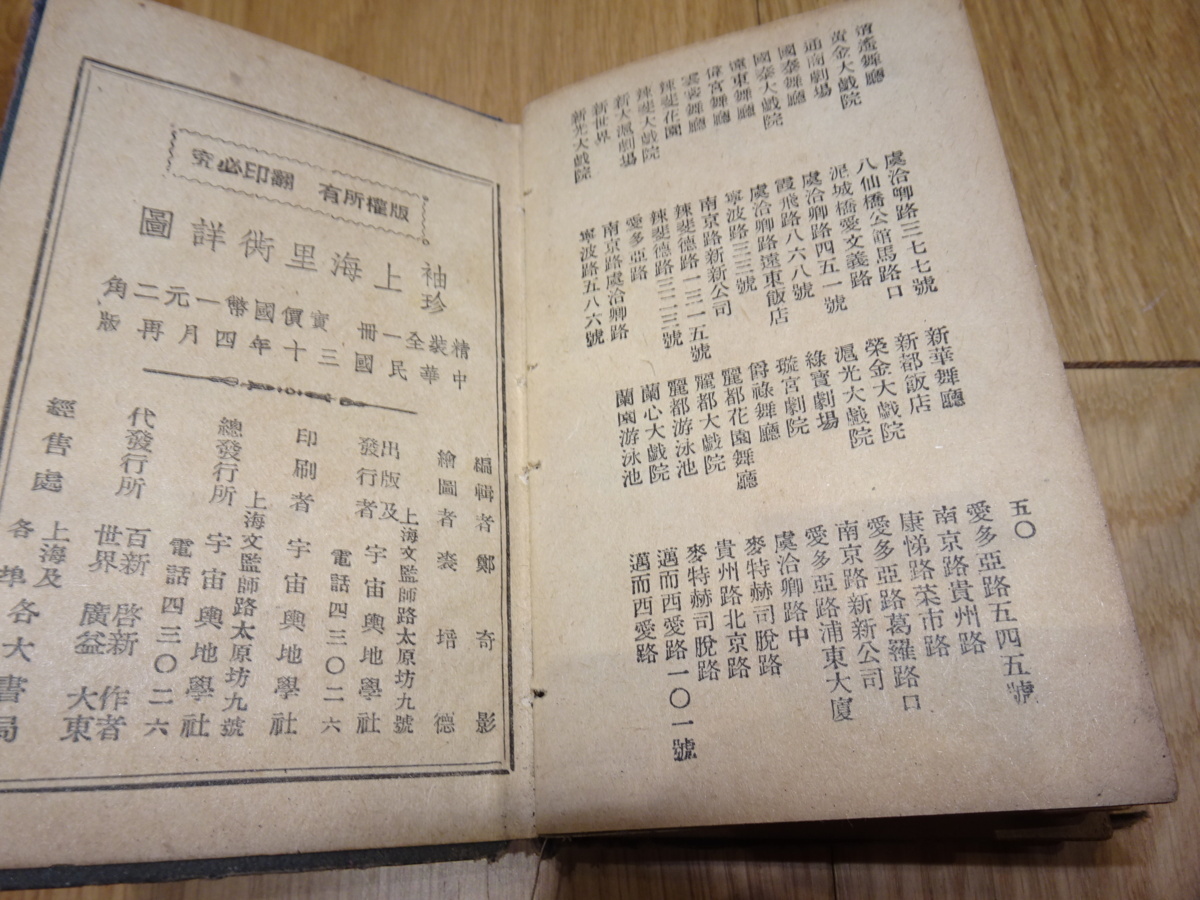 五〇
逍遙舞廳 虞洽卿路三七七號 新華舞廳 愛多亞路五四五號
黃金大戲院 八仙橋公館馬路口 新都飯店 南京路貴州路
通商劇場 泥城橋愛文義路 榮金大戲院 康悌路菜市路
國泰舞廳 虞洽卿路四五一號 滬光大戲院 愛多亞路葛羅路口
國泰大戲院 霞飛路八六八號 綠寶劇場 南京路新新公司
遠東舞廳 虞洽卿路遠東飯店 璇宮劇院 愛多亞路浦東大廈
偉宮舞廳 寧波路三三號 爵祿舞廳 虞洽卿路中
雲裳舞廳 南京路新新公司 麗都花園舞廳 麥特赫司脫路
辣斐花園 辣斐德路一三一五號 麗都大戲院 貴州路北京路
辣斐大戲院 辣斐德路三二三號 麗都游泳池 麥特赫司脫路
新大滬劇場 愛多亞路 蘭心大戲院 邁而西愛路
新世界 南京路虞洽卿路 蘭園游泳池 邁而西愛路一〇一號
新光大戲院 寧波路五八六號
版權所有 翻印必究
袖珍上海里衖詳圖
精裝全一冊實價國幣一元二角
中華民國三十年四月再版
編輯者 鄭奇影
繪圖者 裘培德
出版及發行者 宇宙輿地學社
上海文監師路太原坊九號
電話四三〇二六
印刷者 宇宙輿地學社
總發行所 宇宙輿地學社
上海文監師路太原坊九號
電話四三〇二六
代發行所 百新 啓新 作者
世界 廣益 大東
經售處 上海及各埠各大書局